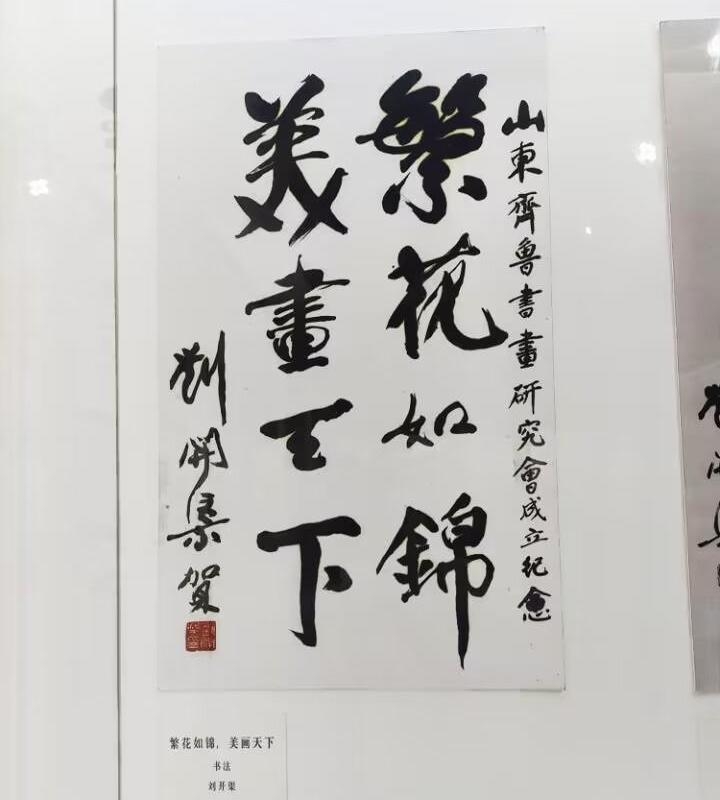 山東齊魯書畫研究會成立紀念
繁花如錦
美畫天下
劉開渠賀
繁花如锦，美画天下
书法
刘开渠